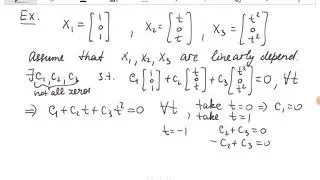 Ex: X₁ = [1 0 1], X₂ = [t 0 t], X₃ = [t² 0 t²]
Assume that X₁, X₂, X₃ are linearly depend.
∃ C₁, C₂, C₃ s.t. C₁ [1 0 1] + C₂ [t 0 t] + C₃ [t² 0 t²] = 0, ∀t
not all zeros
⇒ C₁ + C₂t + C₃t² = 0 ∀t, take t=0 ⇒ C₁ = 0
take t = 1
t = -1 C₂ + C₃ = 0
-C₂ + C₃ = 0